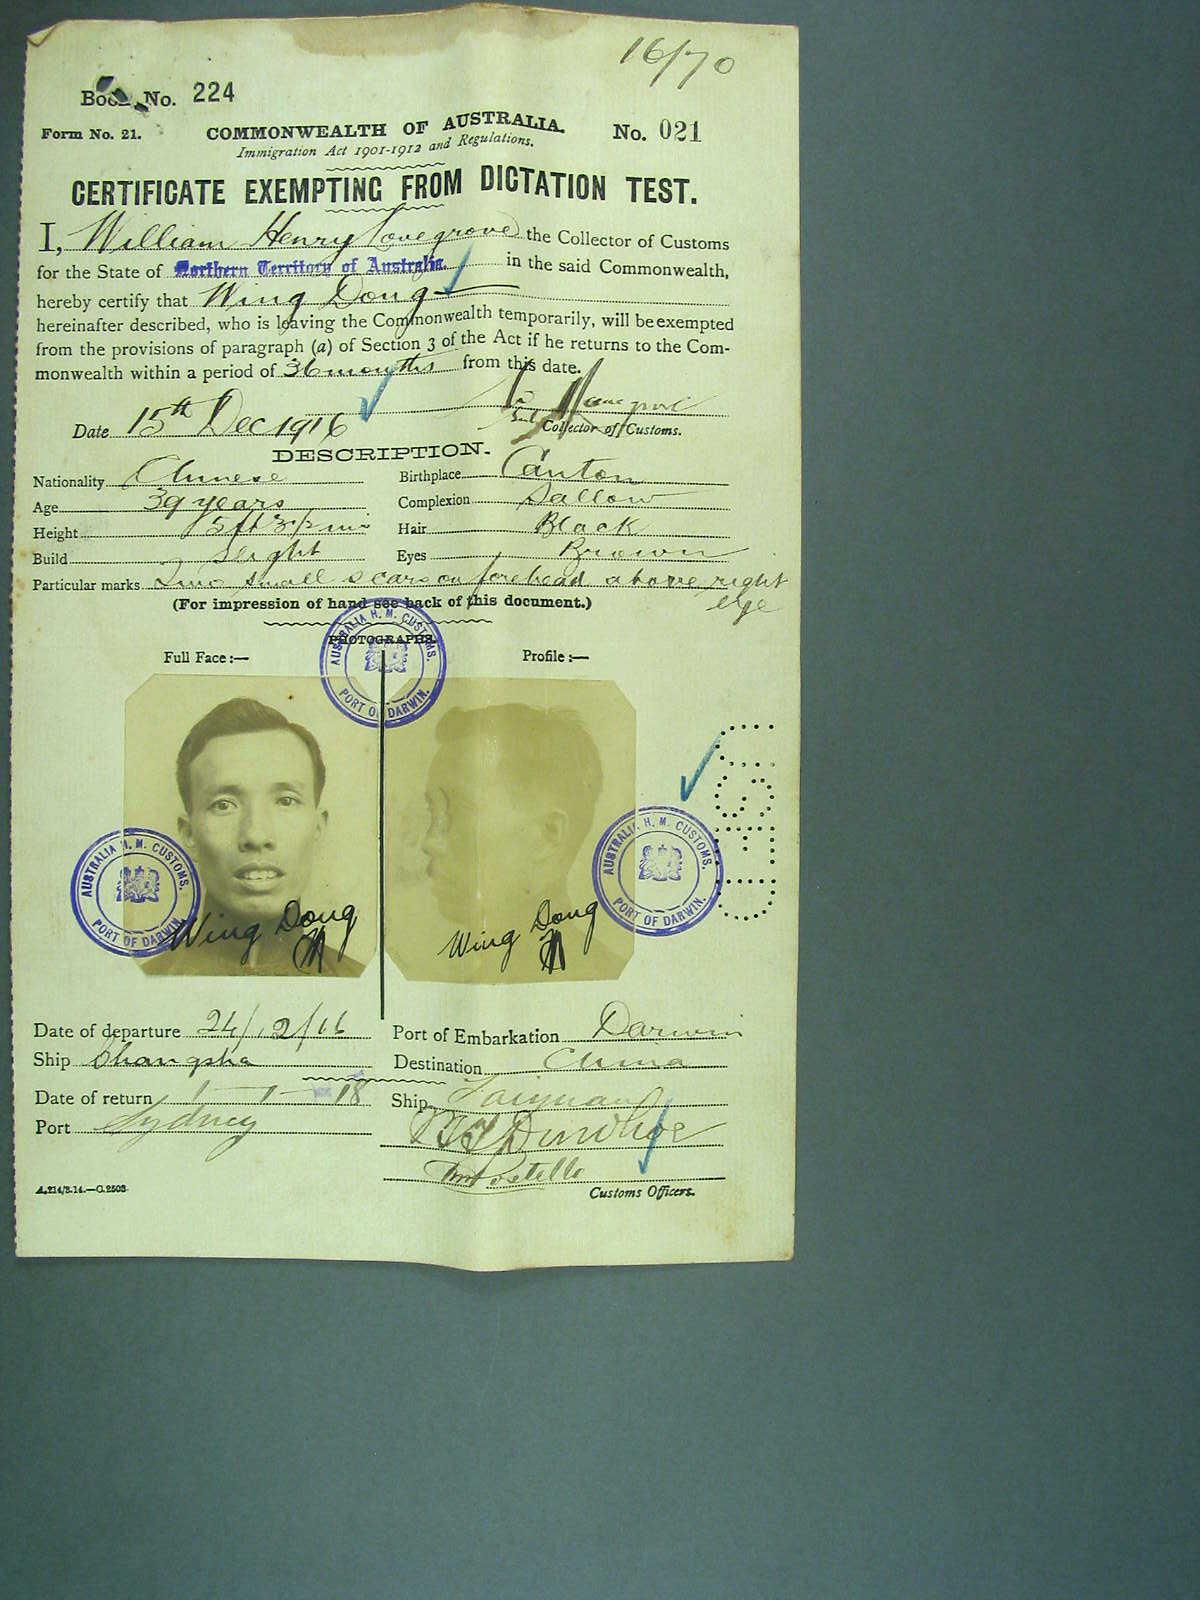 16/70
Book No. 224
Form No. 21.
COMMONWEALTH OF AUSTRALIA.
No. 021
Immigration Act 1901-1912 and Regulations.
CERTIFICATE EXEMPTING FROM DICTATION TEST.
I, William Henry Lovegrove the Collector of Customs
for the State of Northern Territory of Australia. in the said Commonwealth,
hereby certify that Wing Dong
hereinafter described, who is leaving the Commonwealth temporarily, will be exempted
from the provisions of paragraph (a) of Section 3 of the Act if he returns to the Com-
monwealth within a period of 36 months from this date.
Date 15th Dec 1916
Sub Collector of Customs.
DESCRIPTION.
Nationality Chinese Birthplace Canton
Age 39 years Complexion Sallow
Height 5 ft 3½ ins Hair Black
Build Slight Eyes Brown
Particular marks Two small scars on forehead above right
eye
(For impression of hand see back of this document.)
PHOTOGRAPHS.
Full Face :— Profile :—
AUSTRALIA H. M. CUSTOMS.
PORT OF DARWIN.
AUSTRALIA H. M. CUSTOMS.
PORT OF DARWIN.
AUSTRALIA H. M. CUSTOMS.
PORT OF DARWIN.
Wing Dong
Wing Dong
Date of departure 24/12/16 Port of Embarkation Darwin
Ship Changsha Destination China
Date of return 1-1-18 Ship Taiyuan
Port Sydney
Customs Officers.
A.214/3.14.—C.2503